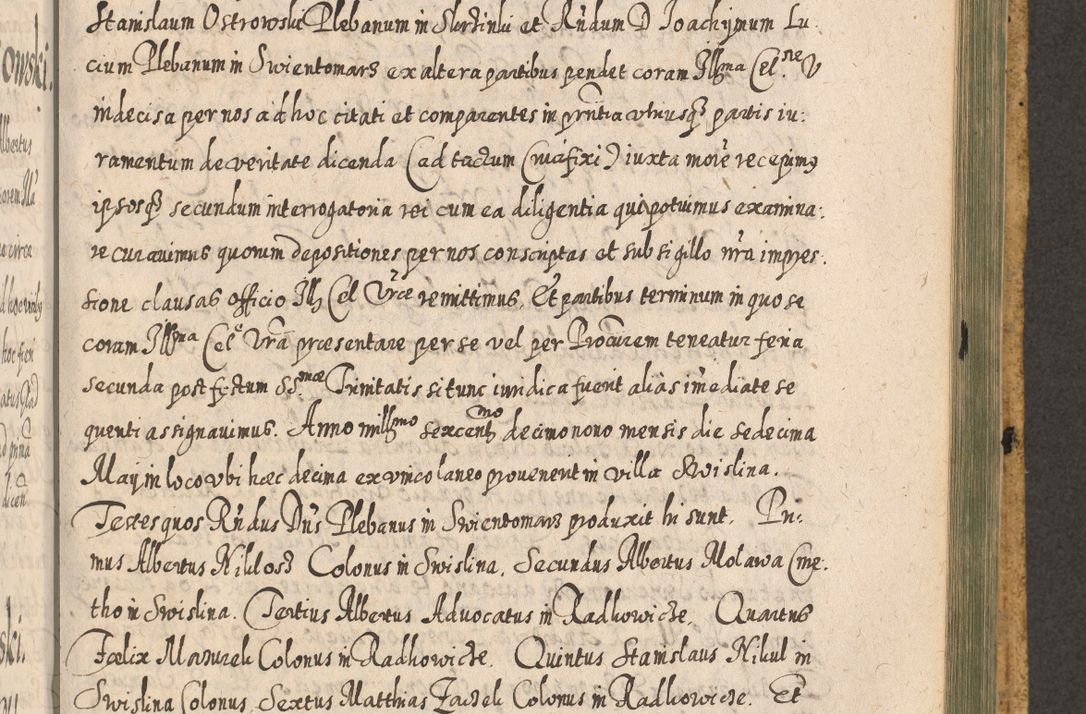 Stanislaum Ostrowski Plebanum in Skrzinki et Rńdum D Joachymum Lu
cium Plebanum in Swientomarz ex altera partibus pendet coram Illma Cel.ne V
indecisa per nos ad hoc citati et comparentes in pn̄tia utriusqz partis iu:
ramentum de veritate dicenda (ad tactum Crucifixi) iuxta morē recepimq
ipsosqz secundum interrogatoria rei cum ea diligentia qui potuimus examina:
re curavimus quorum depositiones per nos conscriptas et sub sigillo nr̄a impres:
sione clausas officio Illz Cel Vr̄ce remittimus. Et partibus terminum in quo se
coram Illma Cele Vrā praesentare per se vel per Procurem teneatur feria
secunda post festum SS.mae Trinitatis si tunc iuridica fuerit aliàs im̄ediate se
quenti assignavimus. Anno millmo sexcentmo decimo nono mensis die sedecima
Maij in loco ubi haec decima ex vinco laneo provenerit in villa Swislina.
Testes quos Rńdus Dńs Plebanus in Swientomarz produxit hi sunt. Pri-
mus Albertus Niklosz Colonus in Swislina. Secundus Albertus Molawa Cme:
tho in Swislina. Tertius Albertus Advocatus in Radkowicze. Quartus
Faelix Mazurek Colonus in Radkowicze. Quintus Stanislaus Nikul in
Swislina Colonus. Sextus Matthias Zaczek Colonus in Radkowicze. Et
owski.
Albertus
circa
hoc
ski.